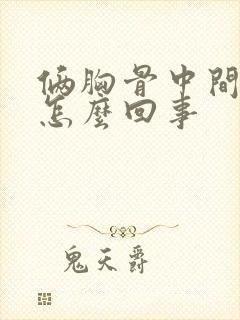 俩胸骨中間
怎麼回事
鬼天爵